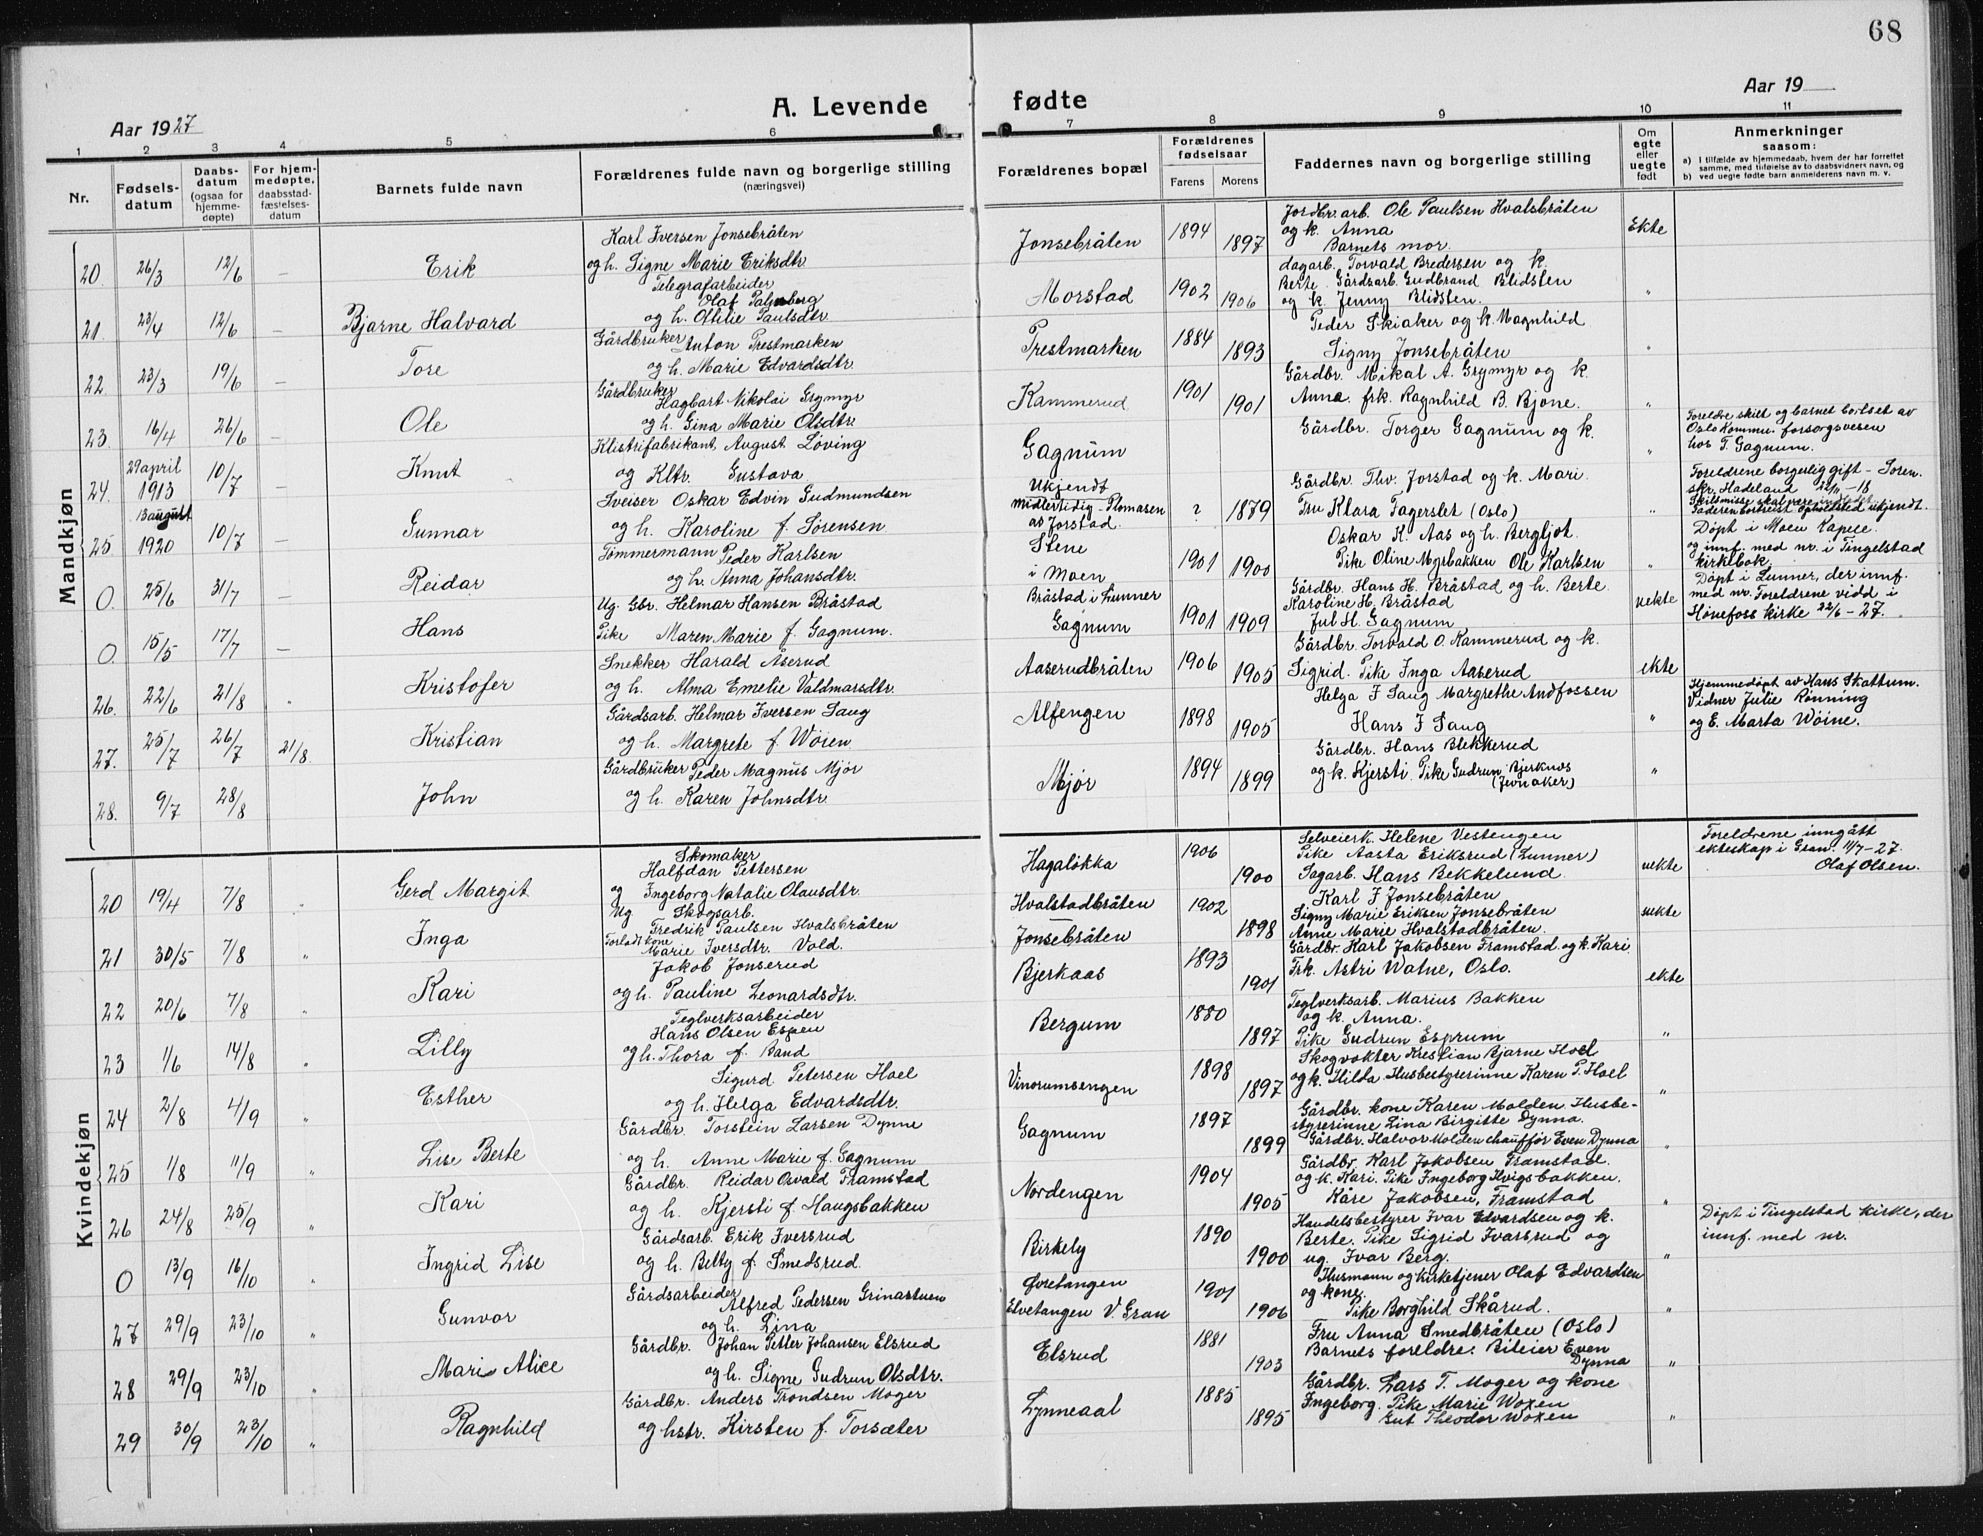 68
A. Levende fødte
Aar 1927
Aar 19
1 2 3 4 5 6 7 8 9 10 11
Nr.
Fødsels-
datum
Daabs-
datum
(ogsaa for
hjemme-
døpte)
For hjem-
medøpte,
daabsstad-
fæstelses-
datum
Barnets fulde navn
Forældrenes fulde navn og borgerlige stilling
(næringsvei)
Forældrenes bopæl
Forældrenes
fødselsaar
Farens Morens
Faddernes navn og borgerlige stilling
Om
egte
eller
uegte
født
Anmerkninger
saasom:
a) I tilfælde av hjemmedaab, hvem der har forrettet
samme, med tilføielse av to daabsvidners navn, og
b) ved uegte fødte barn anmelderens navn m. v.
Mandkjøn
20. 26/3 12/6 — Erik
Karl Iversen Jonsebråten
og h. Signe Marie Eriksdtr.
Jonsebråten 1894 1897
Jordbr.arb. Ole Paulsen Hvalsbråten
og k. Anna
Barnets mor.
Ekte
21. 23/4 12/6 — Bjarne Halvard
Telegrafarbeider
Olaf Palmberg
og h. Othilie Paulsdtr.
Morstad 1902 1906
dagarb. Torvald Bredersen og k.
Berte. Gårdsarb. Gudbrand Blidsten
og k. Jenny Blidsten.
"
22. 23/3 19/6 — Tore
Gårdbruker Anton Prestmarken
og h. Marie Edvardsdtr.
Prestmarken 1884 1893
Peder Skiaker og k. Magnhild
Signy Jonsebråten
"
23 16/4 26/6 — Ole
Gårdbruker
Hagbart Nikolai Grymyr
og h. Gina Marie Olsdtr.
Kammerud 1901 1901
Gårdbr. Mikal A. Grymyr og k.
Anna. frk. Ragnhild B. Bjone.
"
24. 29 april 1913 10/7 — Knut
Klistrifabrikant August Løving
og Kltr. Gustava
Gagnum
Gårdbr. Torger Gagnum og k.
"
Foreldre skilt og barnet bortset av
Oslo Kommu. forsorgsvesen
hos T. Gagnum.
25 13 august 1920 10/7 — Gunnar
Sveiser Oskar Edvin Gudmundsen
og h. Karoline f. Sørensen
Ukjendt
midlertidig - Plomasen
av Jorstad.
? 1879
Gårdbr. Thv. Jorstad og k. Mari.
Fru Klara Fagerslet (Oslo)
"
Foreldrene borgerlig gift - Soren-
skr. Hadeland 12/11 - 18
Skilsmisse skal være indledet.
Faderen bortreist opholdsted ukjendt.
0. 25/6 31/7 — Reidar
Tømmermann Peder Karlsen
og h. Anna Johansdtr.
Stene
i Moen
1901 1900
Oskar K. Aas og h. Bergljot.
Pike Oline Myrbakken Ole Karlsen
"
Døpt i Moen Kapell.
og innf. med nr. i Tingelstad
kirkebok.
0. 15/5 17/7 — Hans
Ug. Gbr. Helmar Hansen Bråstad
Pike Maren Marie f. Gagnum.
Bråstad i Lunner
Gagnum
1901 1909
Gårdbr. Hans H. Bråstad og h. Berte.
Karoline H. Bråstad
Jul H. Gagnum
uekte
Døpt i Lunner, der innf.
med nr. Foreldrene vidd i
Hønefoss kirke 22/6 - 27.
26. 22/6 21/8 " Kristofer
Snekker Harald Åserud
og h. Alma Emelie Valdmarsdtr.
Aaserudbråten 1906 1905
Gårdbr. Torvald O. Kammerud og k.
Sigrid. Pike Inga Aaserud
ekte
27. 25/7 26/7 21/8. Kristian
Gårdsarb. Helmar Iversen Saug
og h. Margrete f. Wøien.
Alfengen 1898 1905
Helga I Saug Margrethe Andfossen
Hans I Saug
"
Hjemmedøpt av Hans Skattum.
Vidner Julie Rønning
og E. Marta Wøine.
28. 9/7 28/8 John
Gårdbruker Peder Magnus Mjør
og h. Karen Johnsdtr.
Mjør 1894 1899
Gårdbr. Hans Blekkerud
og k. Kjersti. Pike Gudrun Bjerknes
(Jevnaker)
"
Kvindekjøn
20 19/4 7/8 " Gerd Margit
Skomaker
Halfdan Pettersen
og Ingeborg Natalie Olausdtr.
Hagaløkka 1906 1900
Selveierk. Helene Vestengen
Pike Aasta Eriksrud (Lunner)
Sagarb. Hans Bekkelund.
uekte
Foreldrene inngått
ekteskap i Gran. 11/7 - 27.
Olaf Olsen.
21 30/5 7/8 " Inga
Ug Skogsarb.
Fredrik Paulsen Hvalsbråten
Forladt kone
Marie Iversdtr. Vold.
Hvalstadbråten
Jonsebråten
1902 1898
Karl I Jonsebråten
Signy Marie Eriksen Jonsebråten
Anne Marie Hvalstadbråten.
uekte
22 20/6 7/8 " Kari
Jakob Jonserud
og h. Pauline Leonardsdtr.
Bjerkaas 1893 1901
Gårdbr. Karl Jakobsen Framstad og k. Kari.
Frk. Astri Watne, Oslo.
ekte
23 1/6 14/8 " Lilly
Teglverksarbeider
Hans Olsen Espen
og h. Thora f. Band
Bergum 1880 1897
Teglverksarb. Marius Bakken
og k. Anna.
Pike Gudrun Esprum
"
24 2/8 4/9 " Esther
Sigurd Petersen Hoel
og h. Helga Edvardsdtr.
Vinorumsengen 1898 1897
Skogvokter Krestian Bjarne Hoel
og k. Hilda. Husbestyrerinne Karen P. Hoel
"
25 1/8 11/9 " Lise Berte
Gårdbr. Torstein Larsen Dynne
og h. Anne Marie f. Gagnum
Gagnum 1897 1899
Gårdbr. kone Karen Molden. Husbe-
styrerinne Lina Birgitte Dynna.
Gårdbr. Halvor Molden chauffør Even Dynna
"
26 24/8 25/9 " Kari
Gårdbr. Reidar Osvald Framstad
og h. Kjersti f. Haugsbakken
Nordengen 1904 1905
Gårdbr. Karl Jakobsen Framstad.
og k. Kari. Pike Ingeborg Hvigsbakken.
Kåre Jakobsen, Framstad
"
0 13/9 16/10 " Ingrid Lise
Gårdsarb. Erik Iversrud
og h. Betty f. Smedsrud.
Birkely 1890 1900
Handelsbestyrer Ivar Edvardsen og k.
Berte. Pike Sigrid Ivarsrud og
ug. Ivar Berg.
"
Døpt i Tingelstad kirke, der
innf. med nr.
27 29/9 23/10 " Gunvor
Gårdsarbeider
Alfred Pedersen Grinastuen
og h. Lina
Øvretangen
Elvetangen V. Gran
1901 1906
Husmann og kirketjener Olaf Edvardsen
og kone.
Pike Borghild Skårud.
"
28 29/9 23/10 " Mari Alice
Gårdbr. Johan Petter Johansen Elsrud
og h. Signe Gudrun Olsdtr.
Elsrud 1881 1903
Fru Anna Smedbråten (Oslo)
Barnets foreldre. Bileier Even
Dynna
"
29 30/9 23/10 " Ragnhild
Gårdbr. Anders Trondsen Moger
og hstr. Kirsten f. Torsæter
Lynneaal 1885 1895
Gårdbr. Lars T. Moger og kone
Ingeborg. Pike Marie Woxen
Gut Theodor Woxen
"